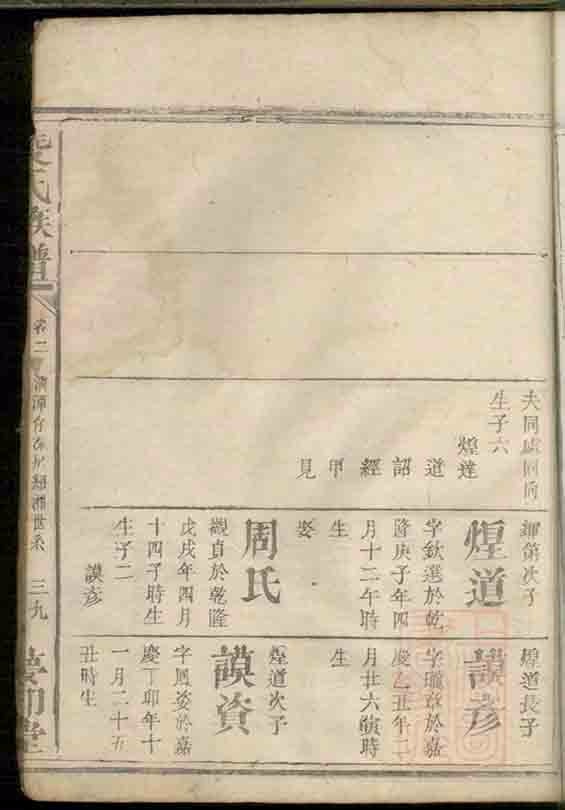 夫同處同向
生子六
煌達
道
詔
經
甲
見
輝第次子
煌道
字欽選於乾
隆庚子年四
月十二午時
生
娶
周氏
觀貞於乾隆
戊戌年四月
十四子時生
生子二
謨彥
煌道長子
謨彥
字瓏章於嘉
慶乙丑年二
月廿六寅時
生
煌道次子
謨資
字鳳姿於嘉
慶丁卯年十
一月二十五
丑時生
氏族譜
卷二
世系
三九